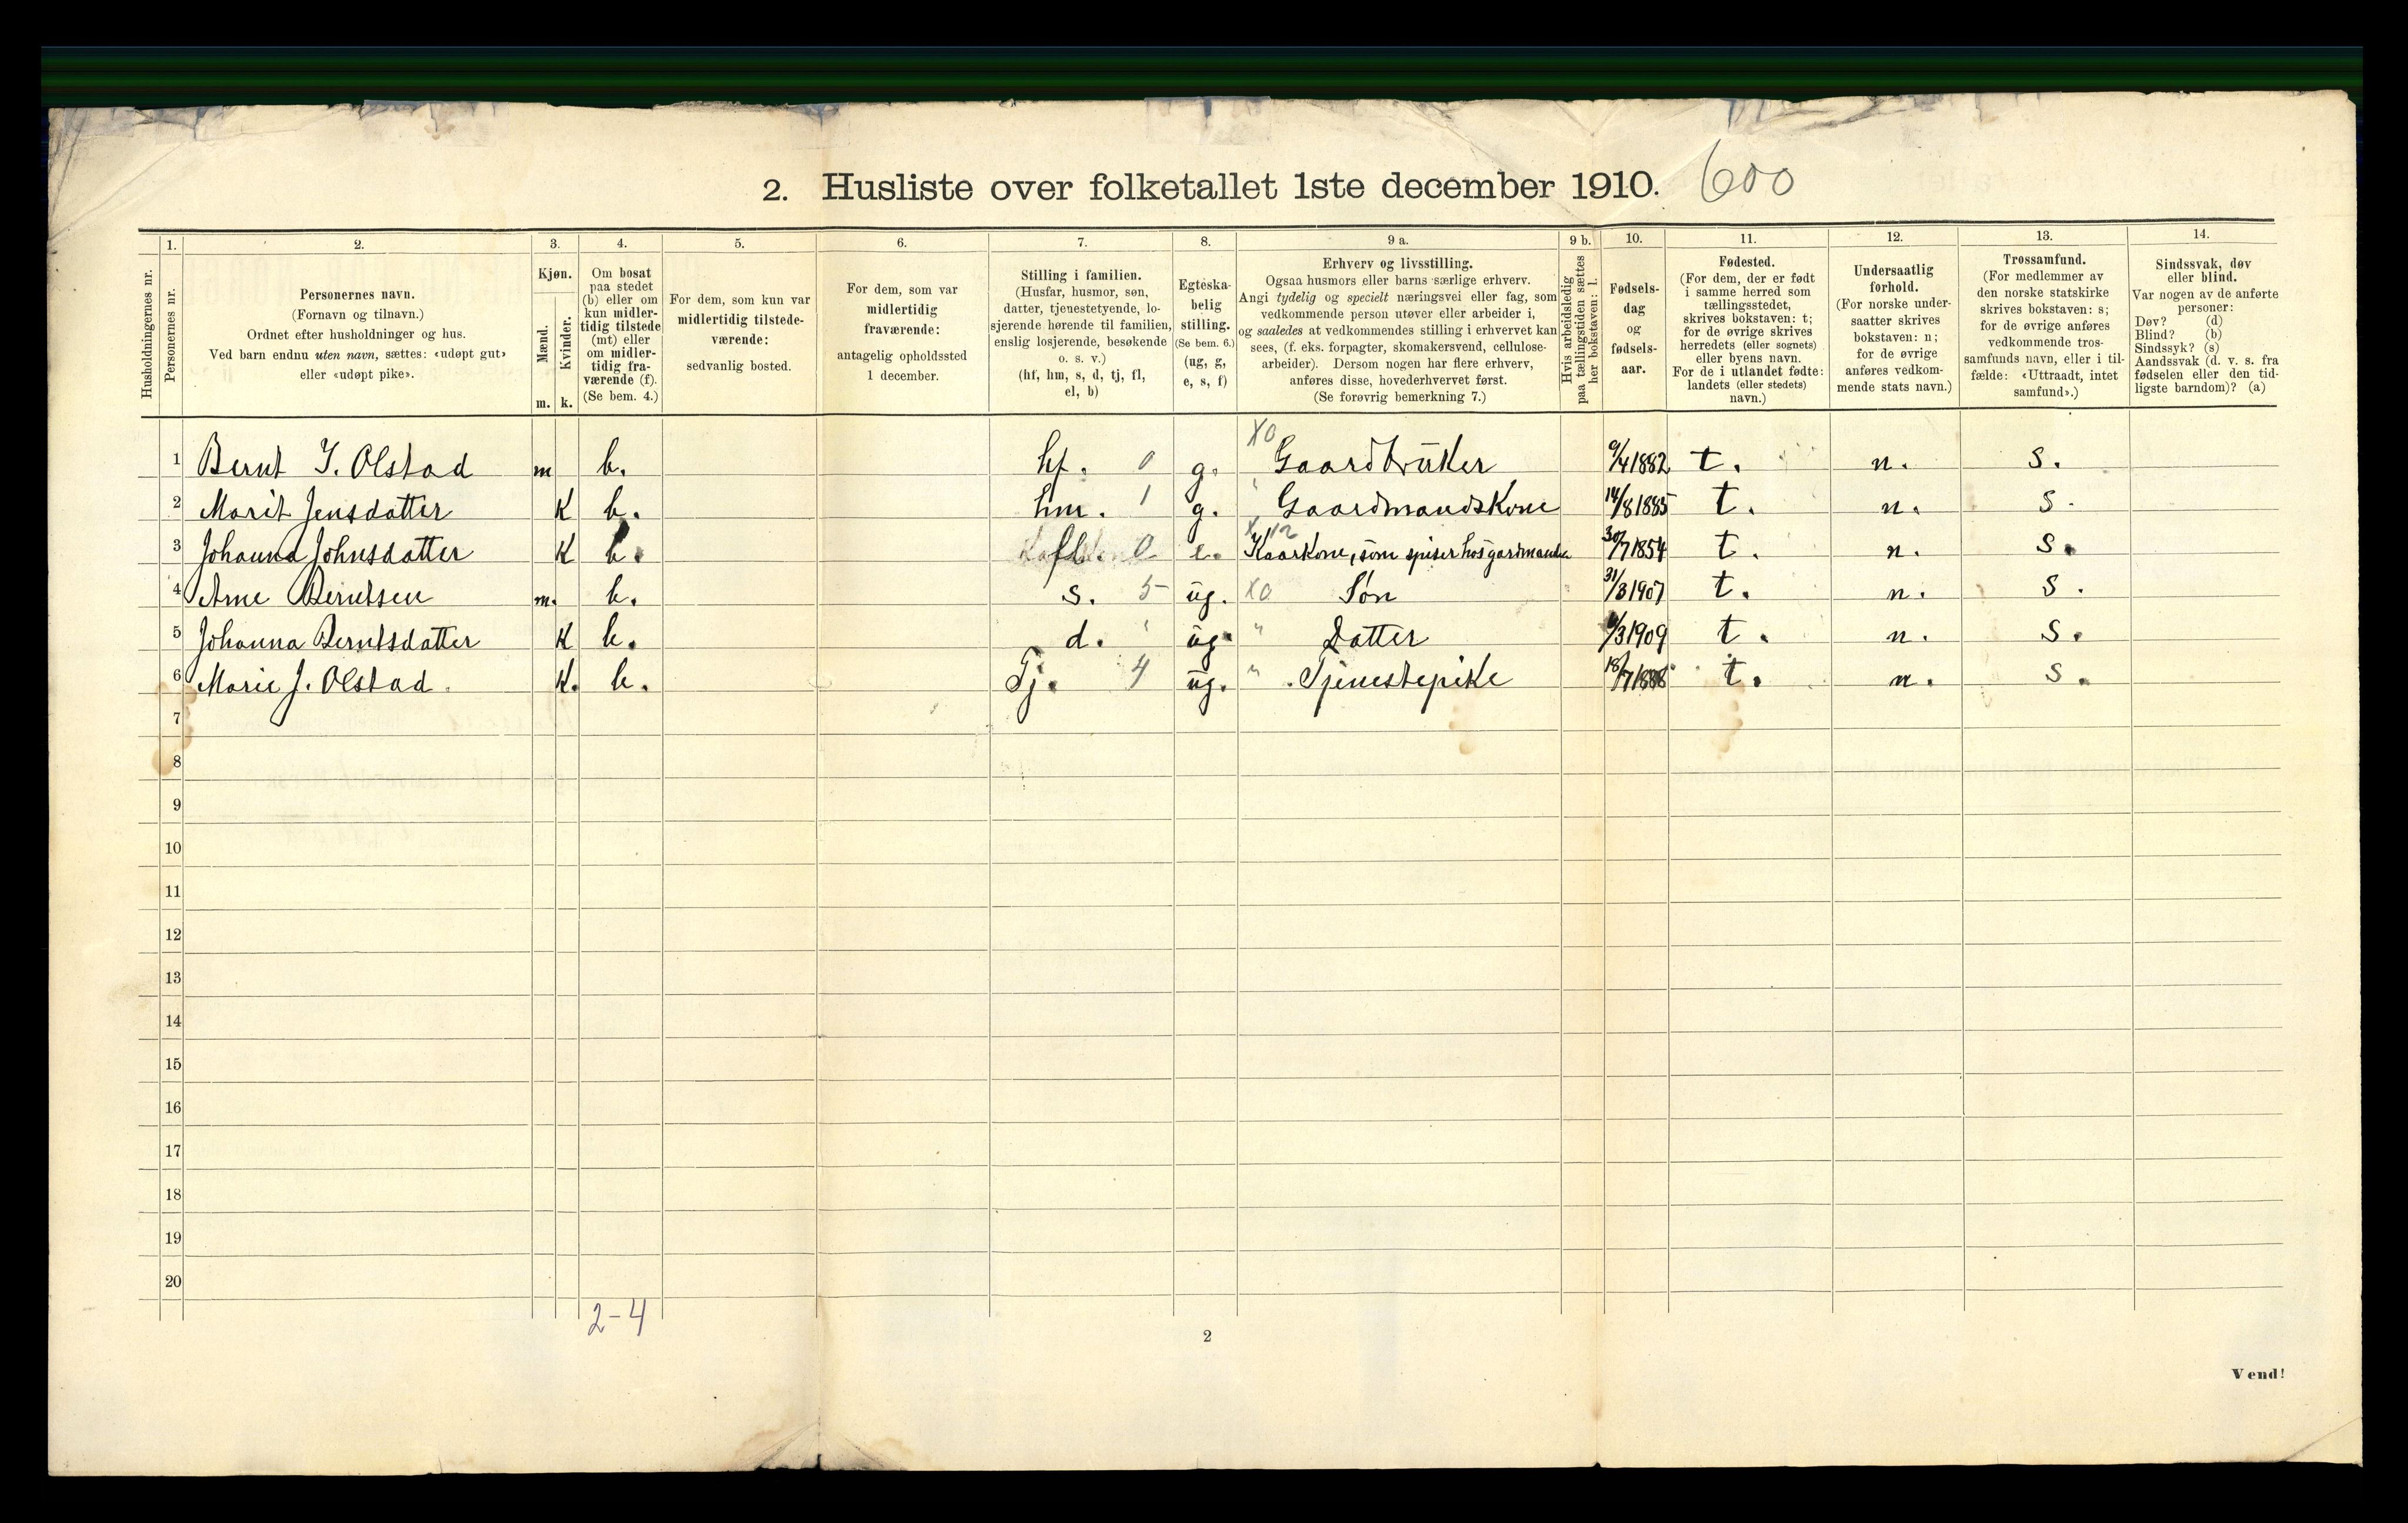 2. Husliste over folketallet 1ste december 1910. 600
Husholdningernes nr.
1.
Personernes nr.
2.
Personernes navn.
(Fornavn og tilnavn.)
Ordnet efter husholdninger og hus.
Ved barn endnu uten navn, sættes: «udøpt gut»
eller «udøpt pike».
3.
Kjøn.
Mænd.
Kvinder.
m. k.
4.
Om bosat
paa stedet
(b) eller om
kun midler-
tidig tilstede
(mt) eller
om midler-
tidig fra-
værende (f).
(Se bem. 4.)
5.
For dem, som kun var
midlertidig tilstede-
værende:
sedvanlig bosted.
6.
For dem, som var
midlertidig
fraværende:
antagelig opholdssted
1 december.
7.
Stilling i familien.
(Husfar, husmor, søn,
datter, tjenestetyende, lo-
sjerende hørende til familien,
enslig losjerende, besøkende
o. s. v.)
(hf, hm, s, d, tj, fl,
el, b)
8.
Egteska-
belig
stilling.
(Se bem. 6.)
(ug, g,
e, s, f)
9 a.
Erhverv og livsstilling.
Ogsaa husmors eller barns særlige erhverv.
Angi tydelig og specielt næringsvei eller fag, som
vedkommende person utøver eller arbeider i,
og saaledes at vedkommendes stilling i erhvervet kan
sees, (f. eks. forpagter, skomakersvend, cellulose-
arbeider). Dersom nogen har flere erhverv,
anføres disse, hovederhvervet først.
(Se forøvrig bemerkning 7.)
9 b.
Hvis arbeidsledig
paa tællingstiden sættes
her bokstaven: l.
10.
Fødsels-
dag
og
fødsels-
aar.
11.
Fødested.
(For dem, der er født
i samme herred som
tællingsstedet,
skrives bokstaven: t;
for de øvrige skrives
herredets (eller sognets)
eller byens navn.
For de i utlandet fødte:
landets (eller stedets)
navn.)
12.
Undersaatlig
forhold.
(For norske under-
saatter skrives
bokstaven: n;
for de øvrige
anføres vedkom-
mende stats navn.)
13.
Trossamfund.
(For medlemmer av
den norske statskirke
skrives bokstaven: s;
for de øvrige anføres
vedkommende tros-
samfunds navn, eller i til-
fælde: «Uttraadt, intet
samfund».)
14.
Sindssvak, døv
eller blind.
Var nogen av de anførte
personer:
Døv? (d)
Blind? (b)
Sindssyk? (s)
Aandssvak (d. v. s. fra
fødselen eller den tid-
ligste barndom)? (a)
X0
1 Bernt J. Olstad m b. hf. 0 g. Gaardbruker 9/4 1882 t. n. s.
2 Marit Jensdatter K b. hm. 1 g. " Gaardmandskone 14/8 1885 t. n. s.
3 Johanna Johnsdatter K b. fl. 0 e. Kaarkone, som spiser hos gardmanden 30/7 1854 t. n. s.
4 Arne Berntsen m. b. s. 5 ug. X0 Søn 31/3 1907 t. n. s.
5 Johanna Berntsdatter K b. d. " ug. " Datter /3 1909 t. n. s.
6 Marie J. Olstad K. b. Tj. 4 ug. " Tjenestepike 18/7 1888 t. n. s.
7
8
9
10
11
12
13
14
15
16
17
18
19
20
2-4
2
Vend!